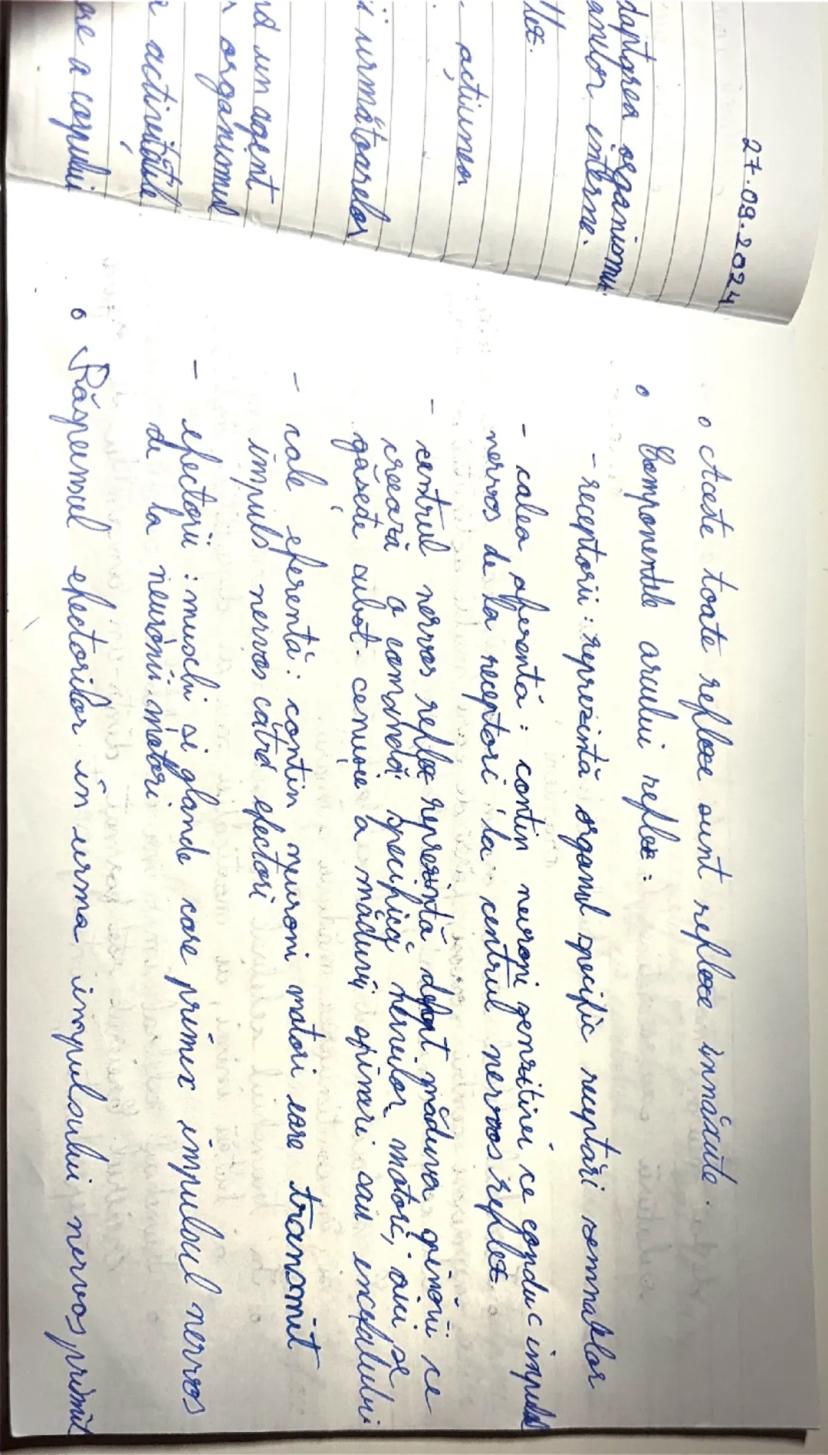 27.09.2024
daptarea organismu-
anilor interne.
lex.
acțiunea
ii următoarelor
nd un agent
organismul
activitățile
a corpului
Aceste toate reflexe sunt reflexe innăscute.
Componentele arcului reflex:
- receptorii: reprezintă organul specific receptări semnalelor
- calea aferentă: contin neuroni senzitivi ce conduc impulsul
nervos de la receptori la centrul nervos reflex
- centrul nervos reflex reprezintă măduva spinării ce
crează o comandă specifică nervilor motori, aici se
găsește subst. cenușie a măduvi spinari sau encefalului
- cale eferentă: contin neuroni motori care transmit
impuls nervos catre efectori
- efectorii: muschi si glande care primex impulsul nervos
de la neuronii motori
Răspunsul efectorilor în urma impulsului nervos primit